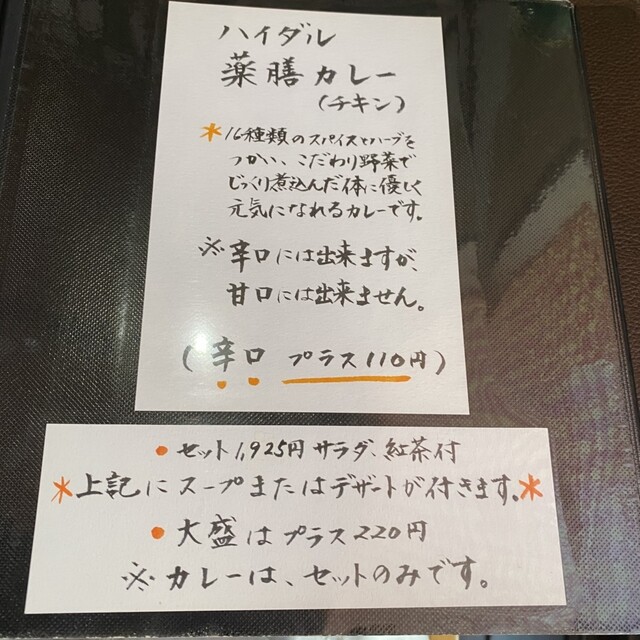 ハイダル
薬膳カレー
(チキン)
*16種類のスパイスやハーブを
つかい、こだわり野菜で
じっくり煮込んだ体に優しく
元気になれるカレーです。
※辛口には出来ますが、
甘口には出来ません。
(辛口 プラス110円)
●セット1,925円 サラダ、紅茶付
*上記にスープまたはデザートが付きます。*
●大盛はプラス220円
※カレーは、セットのみです。